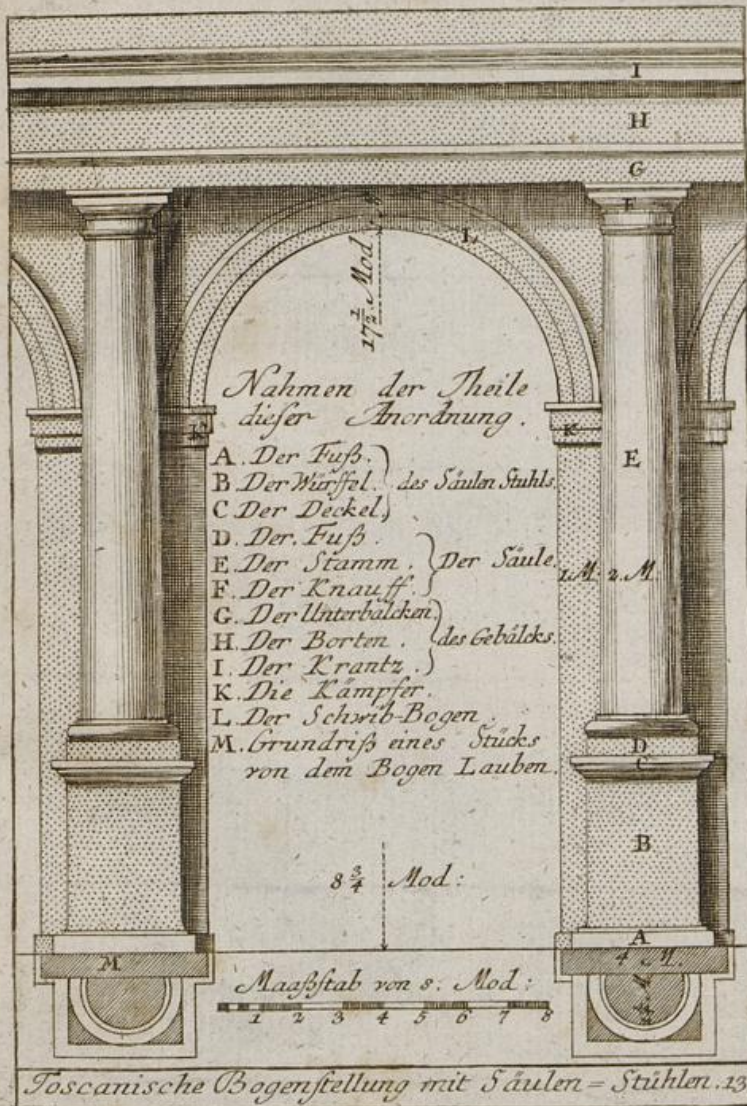 I
H
G
F
L
17 1/2 Mod.
Nahmen der Theile
dieser Anordnung.
K
K
A. Der Fuß.
B. Der Würffel. des Säulen Stuhls.
C. Der Deckel
D. Der. Fuß.
E. Der Stamm. Der Säule.
F. Der Knauff.
G. Der Unterbalcken.
H. Der Borten. des Gebälcks.
I. Der Krantz.
K. Die Kämpfer.
L. Der Schwib-Bogen.
M. Grundriß eines Stücks
von dem Bogen Lauben.
E
1. M. 2. M.
D
C
B
8 3/4 Mod:
A
M
4 M.
Maaßstab von 8. Mod:
1 2 3 4 5 6 7 8
Toscanische Bogenstellung mit Säulen=Stühlen. 13